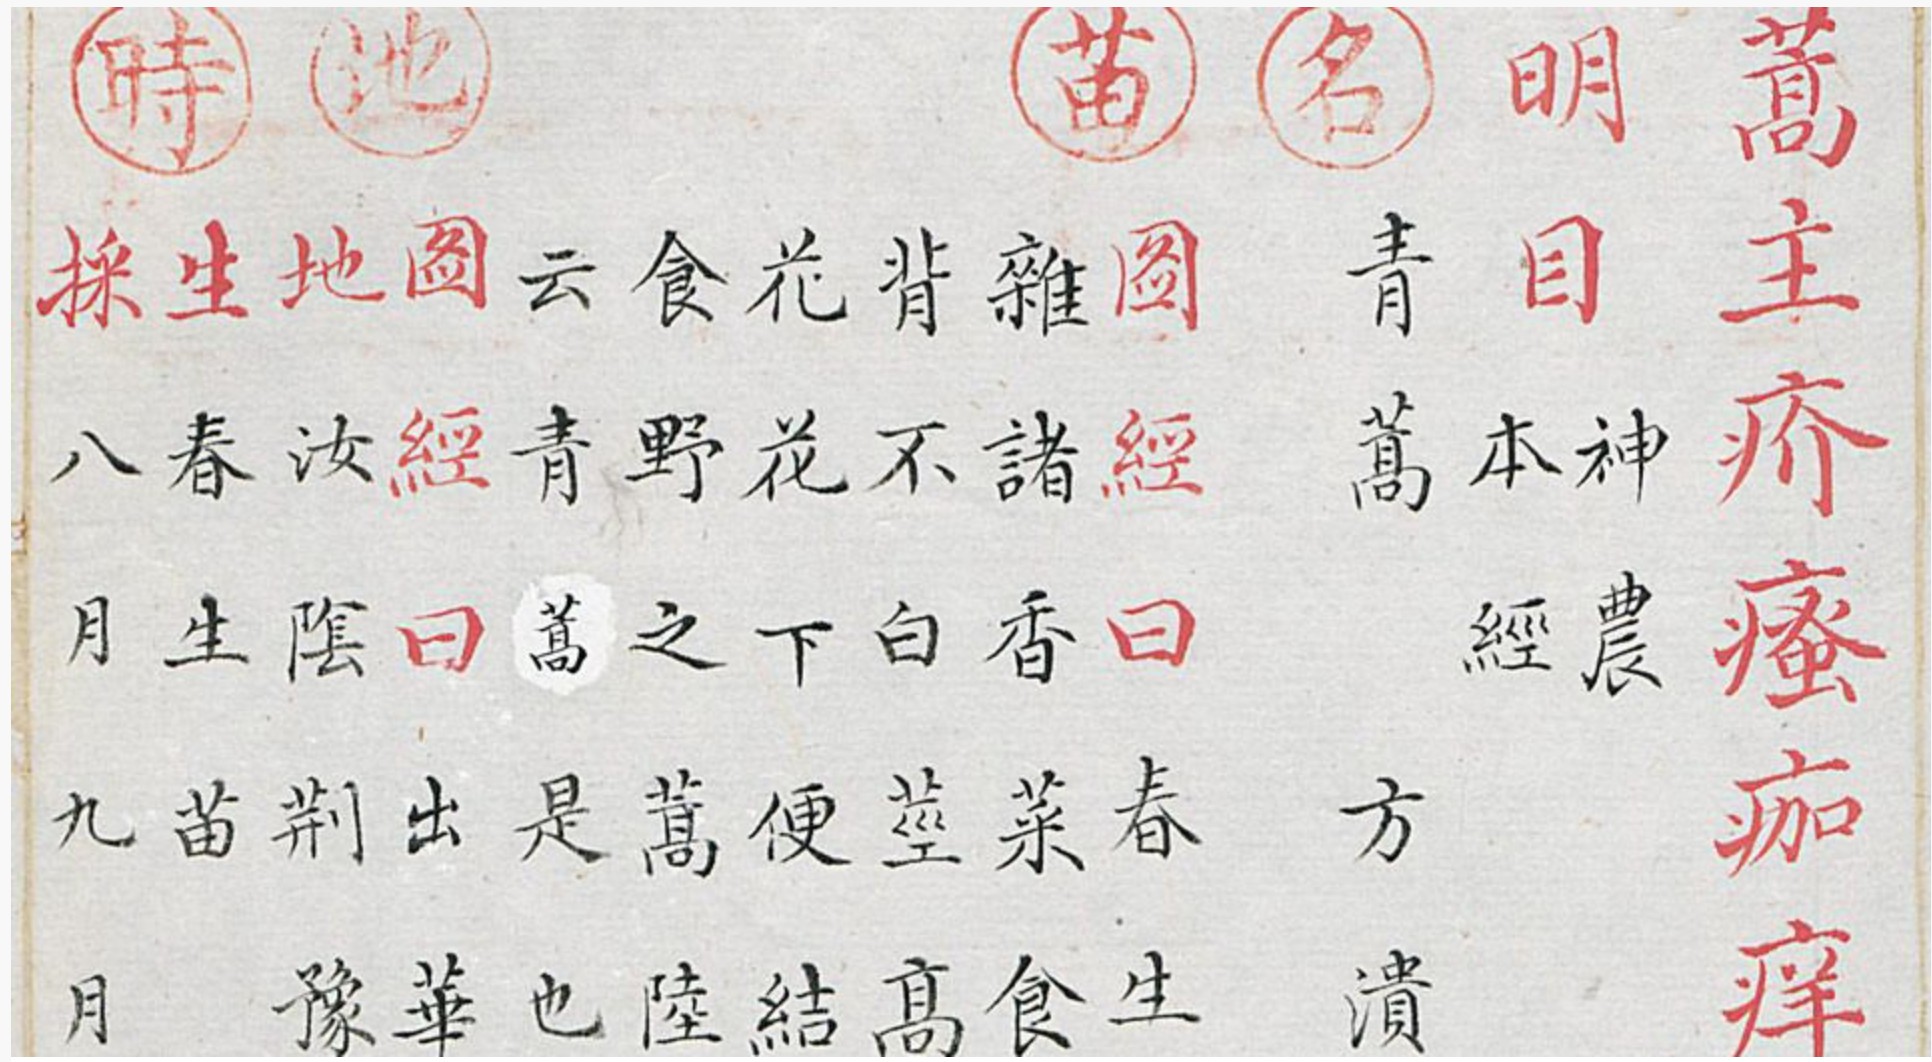 蒿主疥瘙痂痒
明目神農
本經
名青蒿方潰
苗圖經曰春生
雜諸香菜食
背不白莖髙
花花下便結
食野之蒿陸
云青蒿是也
地圖經曰出華
地汝隂荆豫
時生春生苗
採八月九月